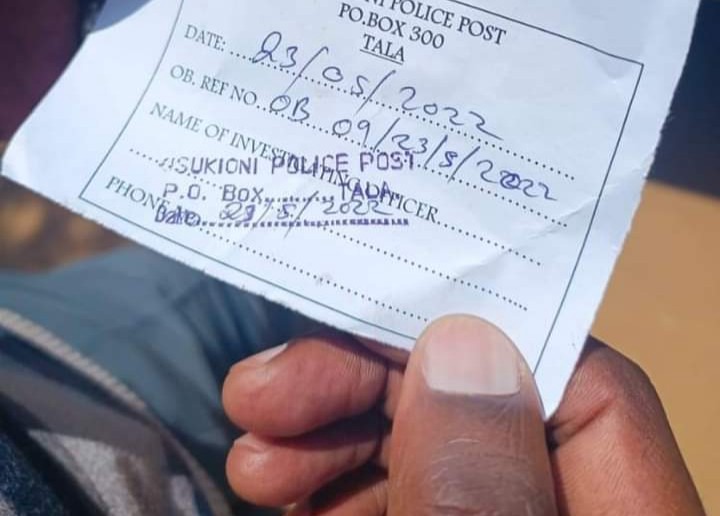 POLICE POST
PO.BOX 300
TALA
DATE: 23/05/2022
OB. REF NO. OB 09/23/5/2022
NAME OF INVESTIGATING OFFICER
SUKIONI POLICE POST
P.O. BOX........, TALA
PHONE
Date. 23/5/2022